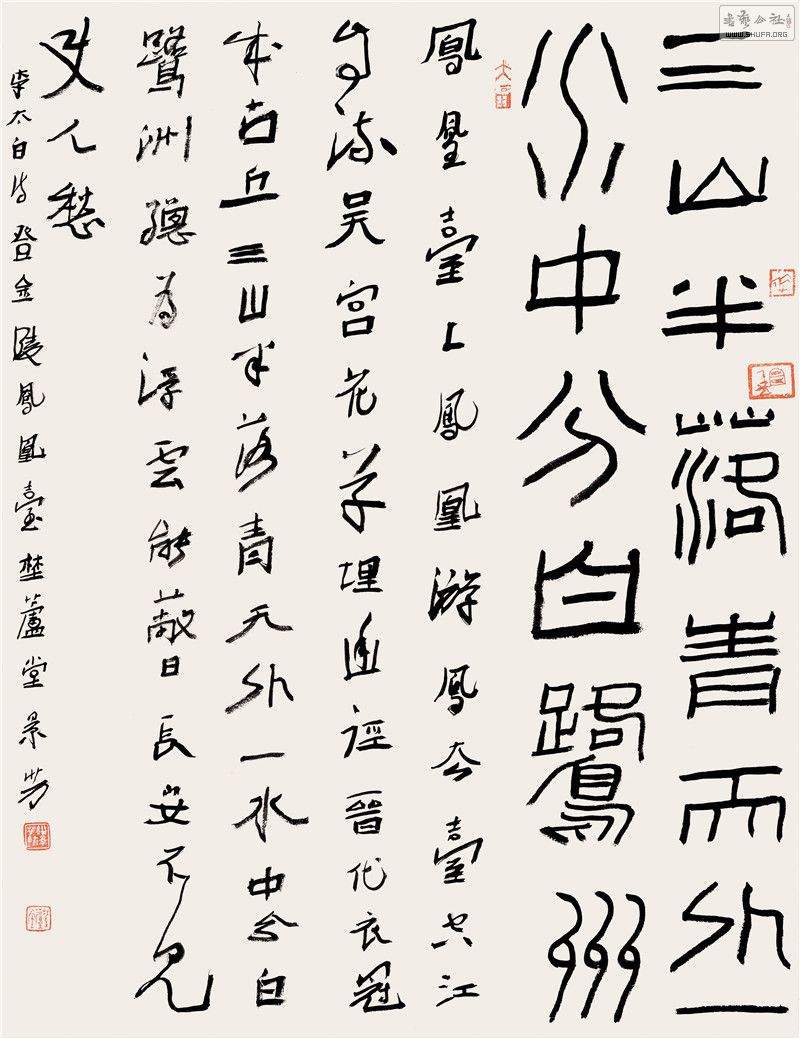 三山半落青天外一
水中分白鷺州
鳳皇臺上鳳凰游鳳去臺空江
自流吴宮花草埋幽徑晉代衣冠
成古丘三山半落青天外一水中分白
鷺洲總為浮雲能蔽日長安不見
使人愁
李太白詩登金陵鳳凰臺埜蘆堂景芳
書藝公社
WWW.SHUFA.ORG